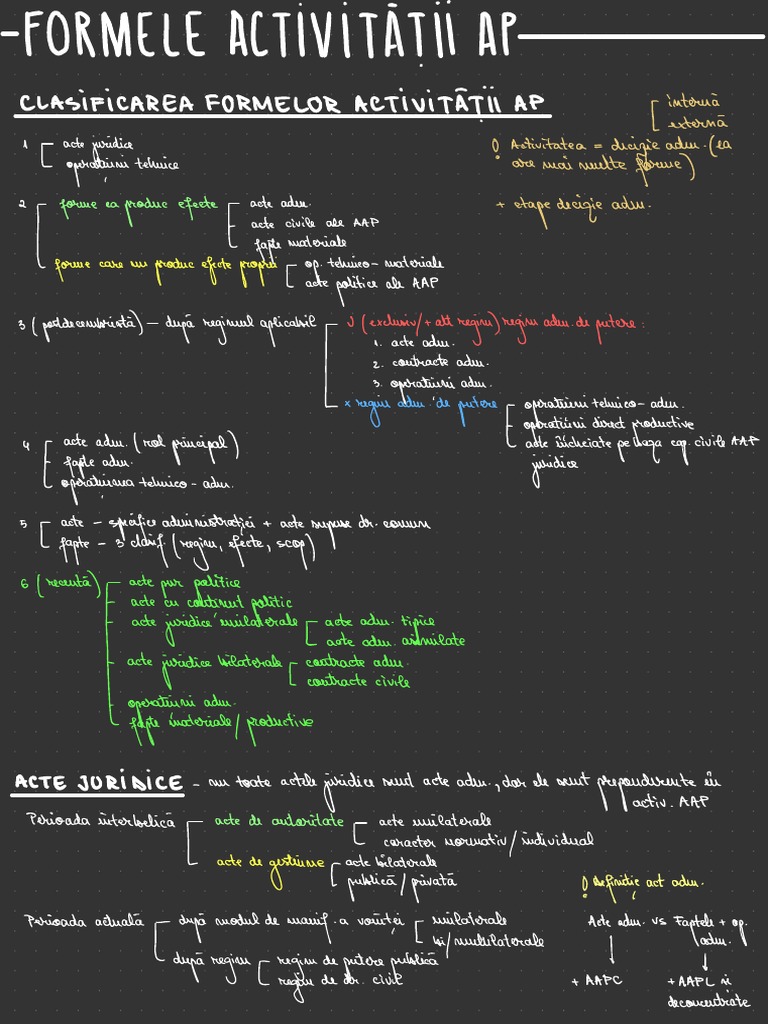 FORMELE ACTIVITĂȚII AP
CLASIFICAREA FORMELOR ACTIVITĂȚII AP
internă
externă
! Activitatea = decizie adm. (ea
are mai multe forme)
+ etape decizie adm.
1 acte juridice
operațiuni tehnice
2 forme ce produc efecte
acte adm.
acte civile ale AAP
fapte materiale
forme care nu produc efecte proprii
op. tehnico-materiale
acte politice ale AAP
3 (postdecembristă) – după regimul aplicabil
(exclusiv/+ alt regim) regim adm. de putere:
1. acte adm.
2. contracte adm.
3. operațiuni adm.
x regim adm. de putere
operațiuni tehnico-adm.
operațiuni direct productive
acte încheiate pe baza cap. civile AAP
juridice
4 acte adm. (rol principal)
fapte adm.
operațiunea tehnico-adm.
5 acte – specifice administrației + acte supuse dr. comun
fapte – 3 clasif. (regim, efecte, scop)
6 (recentă)
acte pur politice
acte cu conținut politic
acte juridice unilaterale
acte adm. tipice
acte adm. asimilate
acte juridice bilaterale
contracte adm.
contracte civile
operațiuni adm.
fapte materiale/productive
ACTE JURIDICE – nu toate actele juridice sunt acte adm., dar ele sunt preponderente în
activ. AAP
Perioada interbelică
acte de autoritate
acte unilaterale
caracter normativ/individual
acte de gestiune
acte bilaterale
publică/privată
! Definiție act adm.
Perioada actuală
după modul de manif. a voinței
unilaterale
bi/multilaterale
Acte adm. vs Faptele + op.
adm.
după regim
regim de putere publică
regim de dr. civil
+ AAPC
+ AAPL și
deconcentrate